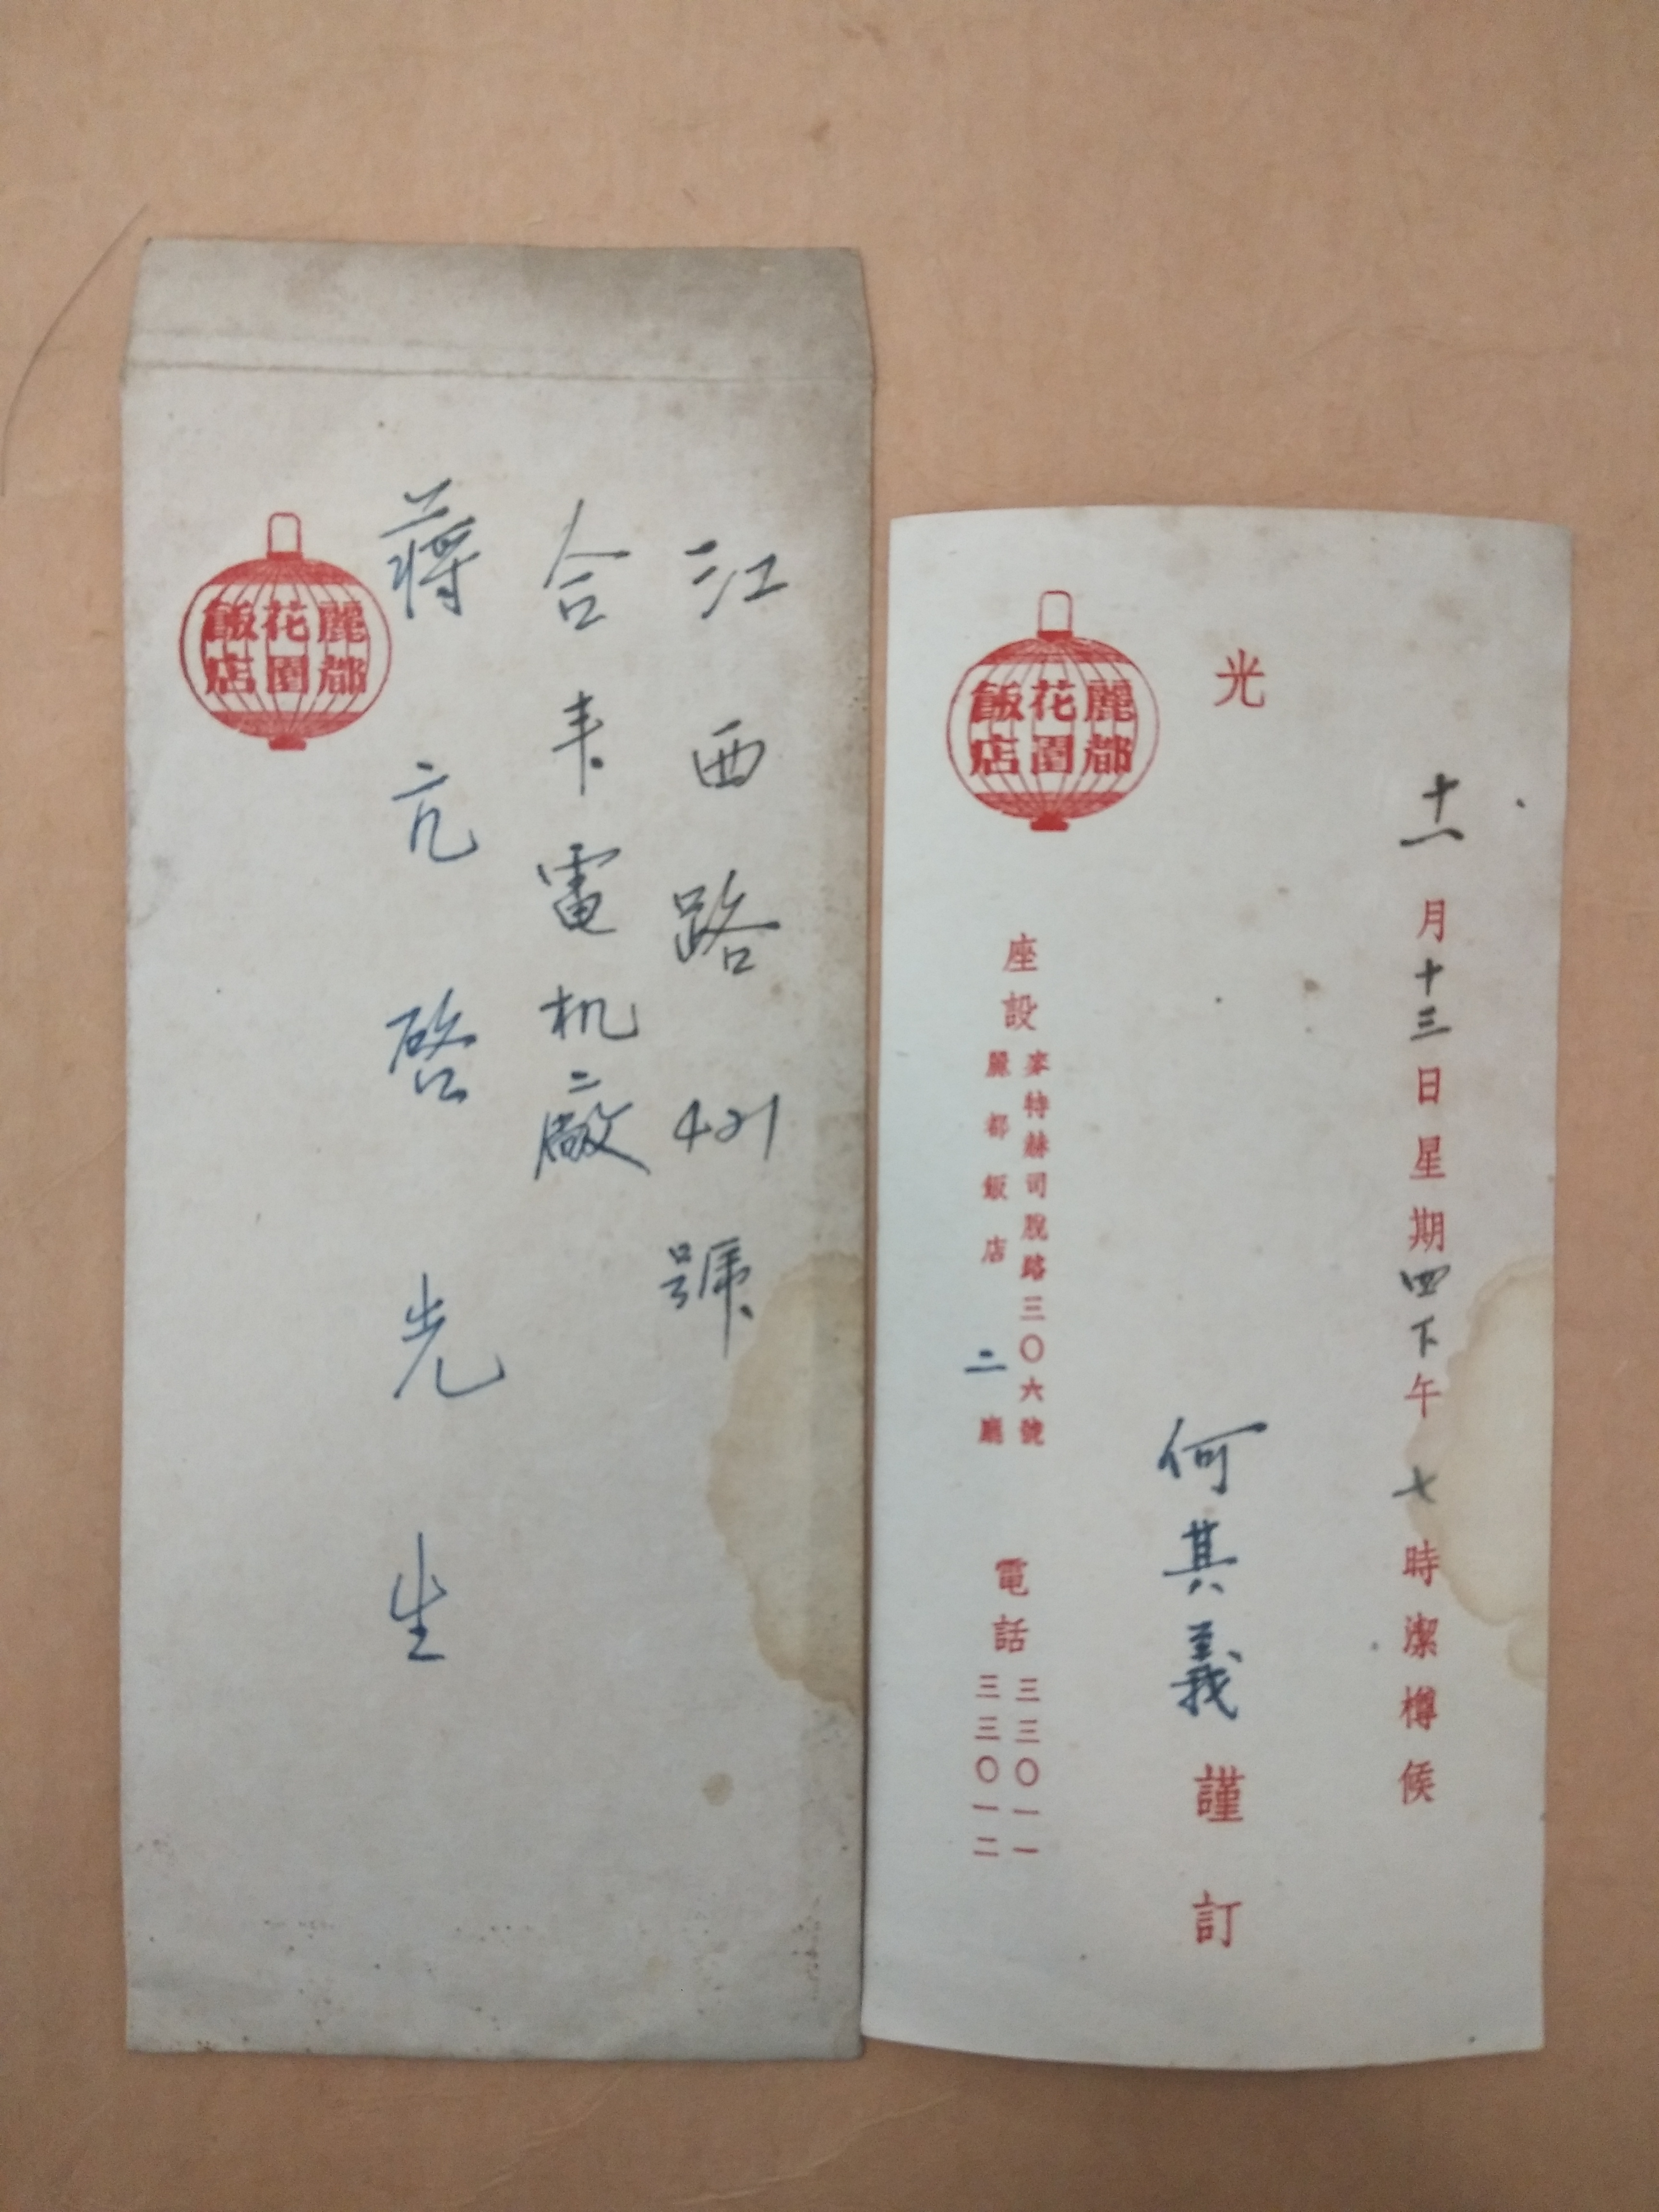 江西路421號
合電机廠
蔣亢啓先生
麗都
花園
飯店
十一月十三日星期四下午七時潔樽候
光
何其義謹訂
座設
麥特赫司脫路三〇六號
麗都飯店二廳
電話
三三〇一一
三三〇一二
麗都
花園
飯店